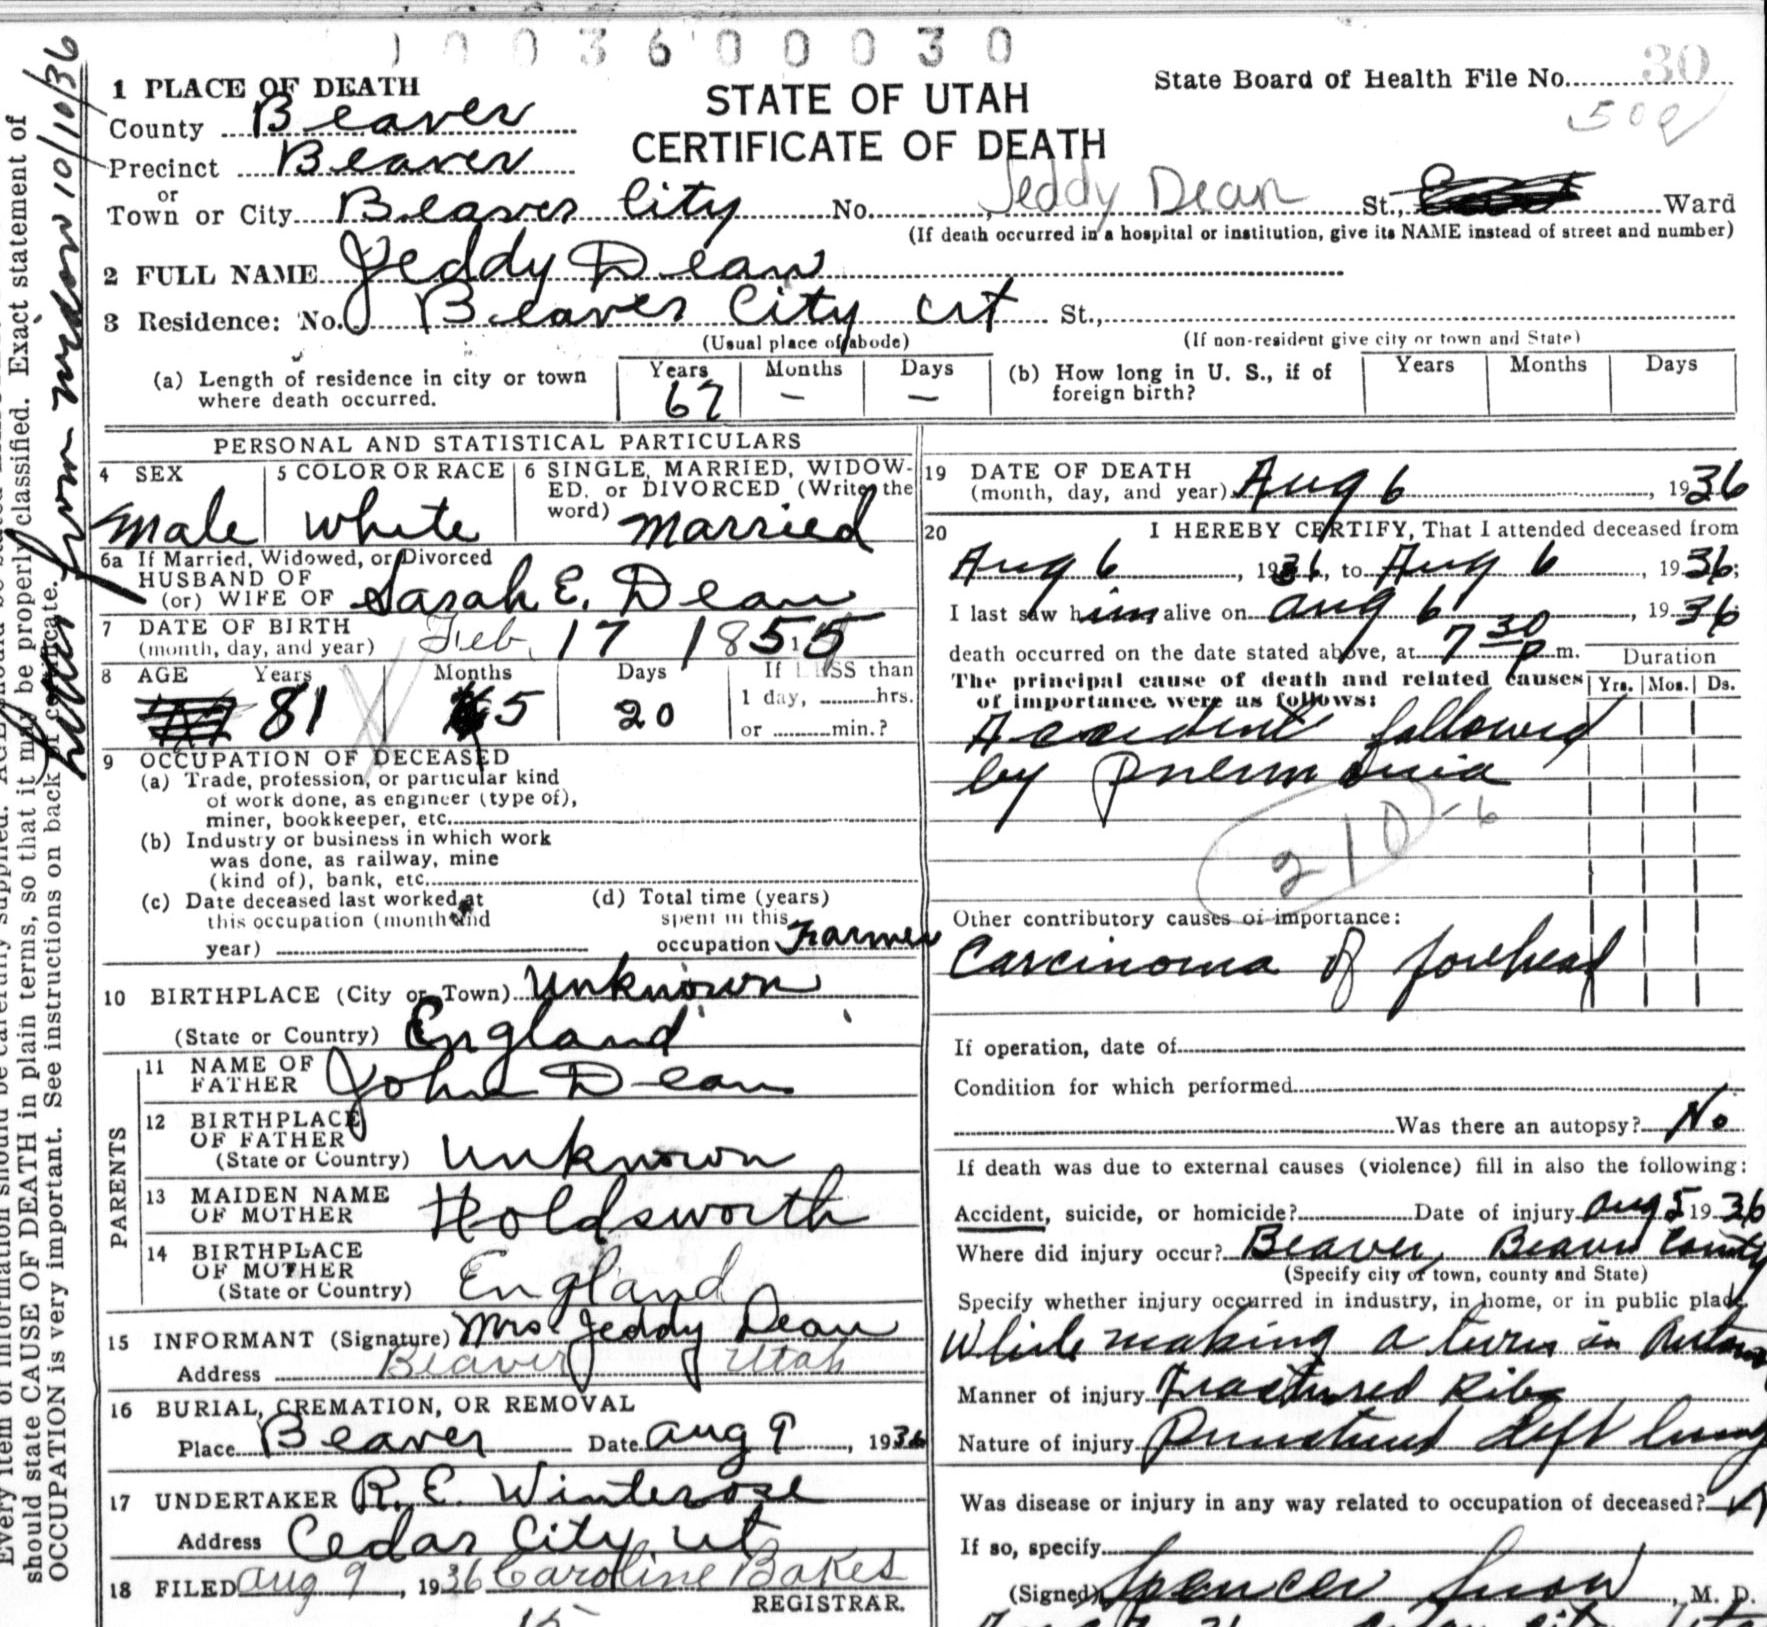 1 0 0 3 6 0 0 0 3 0
State Board of Health File No. 30
STATE OF UTAH
CERTIFICATE OF DEATH
1 PLACE OF DEATH
County Beaver
Precinct Beaver
or
Town or City Beaver City No. Jeddy Dean St., Ward
(If death occurred in a hospital or institution, give its NAME instead of street and number)
2 FULL NAME Jeddy Dean
3 Residence: No. Beaver City Ut St.,
(Usual place of abode) (If non-resident give city or town and State)
(a) Length of residence in city or town where death occurred. Years 67 Months – Days –
(b) How long in U. S., if of foreign birth? Years Months Days
PERSONAL AND STATISTICAL PARTICULARS
4 SEX
Male
5 COLOR OR RACE
White
6 SINGLE, MARRIED, WIDOW-
ED. or DIVORCED (Write the
word) Married
6a If Married, Widowed, or Divorced
HUSBAND OF
(or) WIFE OF Sarah E. Dean
7 DATE OF BIRTH
(month, day, and year) Feb. 17 1855
8 AGE Years Months Days If LESS than
81 5 20 1 day, hrs.
or min.?
9 OCCUPATION OF DECEASED
(a) Trade, profession, or particular kind
of work done, as engineer (type of),
miner, bookkeeper, etc.
(b) Industry or business in which work
was done, as railway, mine
(kind of), bank, etc.
(c) Date deceased last worked at
this occupation (month and
year)
(d) Total time (years)
spent in this
occupation Farmer
10 BIRTHPLACE (City or Town) Unknown
(State or Country) England
PARENTS
11 NAME OF
FATHER John Dean
12 BIRTHPLACE
OF FATHER
(State or Country) Unknown
13 MAIDEN NAME
OF MOTHER Holdsworth
14 BIRTHPLACE
OF MOTHER
(State or Country) England
15 INFORMANT (Signature) Mrs. Jeddy Dean
Address Beaver Utah
16 BURIAL, CREMATION, OR REMOVAL
Place Beaver Date Aug 9, 1936
17 UNDERTAKER R. E. Winterose
Address Cedar City, Ut
18 FILED Aug 9, 1936 Caroline Bakes
REGISTRAR.
15
19 DATE OF DEATH
(month, day, and year) Aug 6, 1936
20 I HEREBY CERTIFY, That I attended deceased from
Aug 6, 1936, to Aug 6, 1936;
I last saw him alive on Aug 6, 1936
death occurred on the date stated above, at 7 30 p m.
Duration
The principal cause of death and related causes
of importance were as follows:
Yrs. Mos. Ds.
Accident followed
by Pneumonia
210-6
Other contributory causes of importance:
Carcinoma of forehead
If operation, date of
Condition for which performed
Was there an autopsy? No
If death was due to external causes (violence) fill in also the following:
Accident, suicide, or homicide? Date of injury Aug 5 1936
Where did injury occur? Beaver, Beaver County
(Specify city or town, county and State)
Specify whether injury occurred in industry, in home, or in public place
While making a turn in
Manner of injury Fractured Ribs
Nature of injury Punctured left lung
Was disease or injury in any way related to occupation of deceased?
If so, specify
(Signed) Spencer Snow, M. D.
should state CAUSE OF DEATH in plain terms, so that it may be properly classified. Exact statement of
OCCUPATION is very important. See instructions on back of certificate.
letter from widow 10/10/36